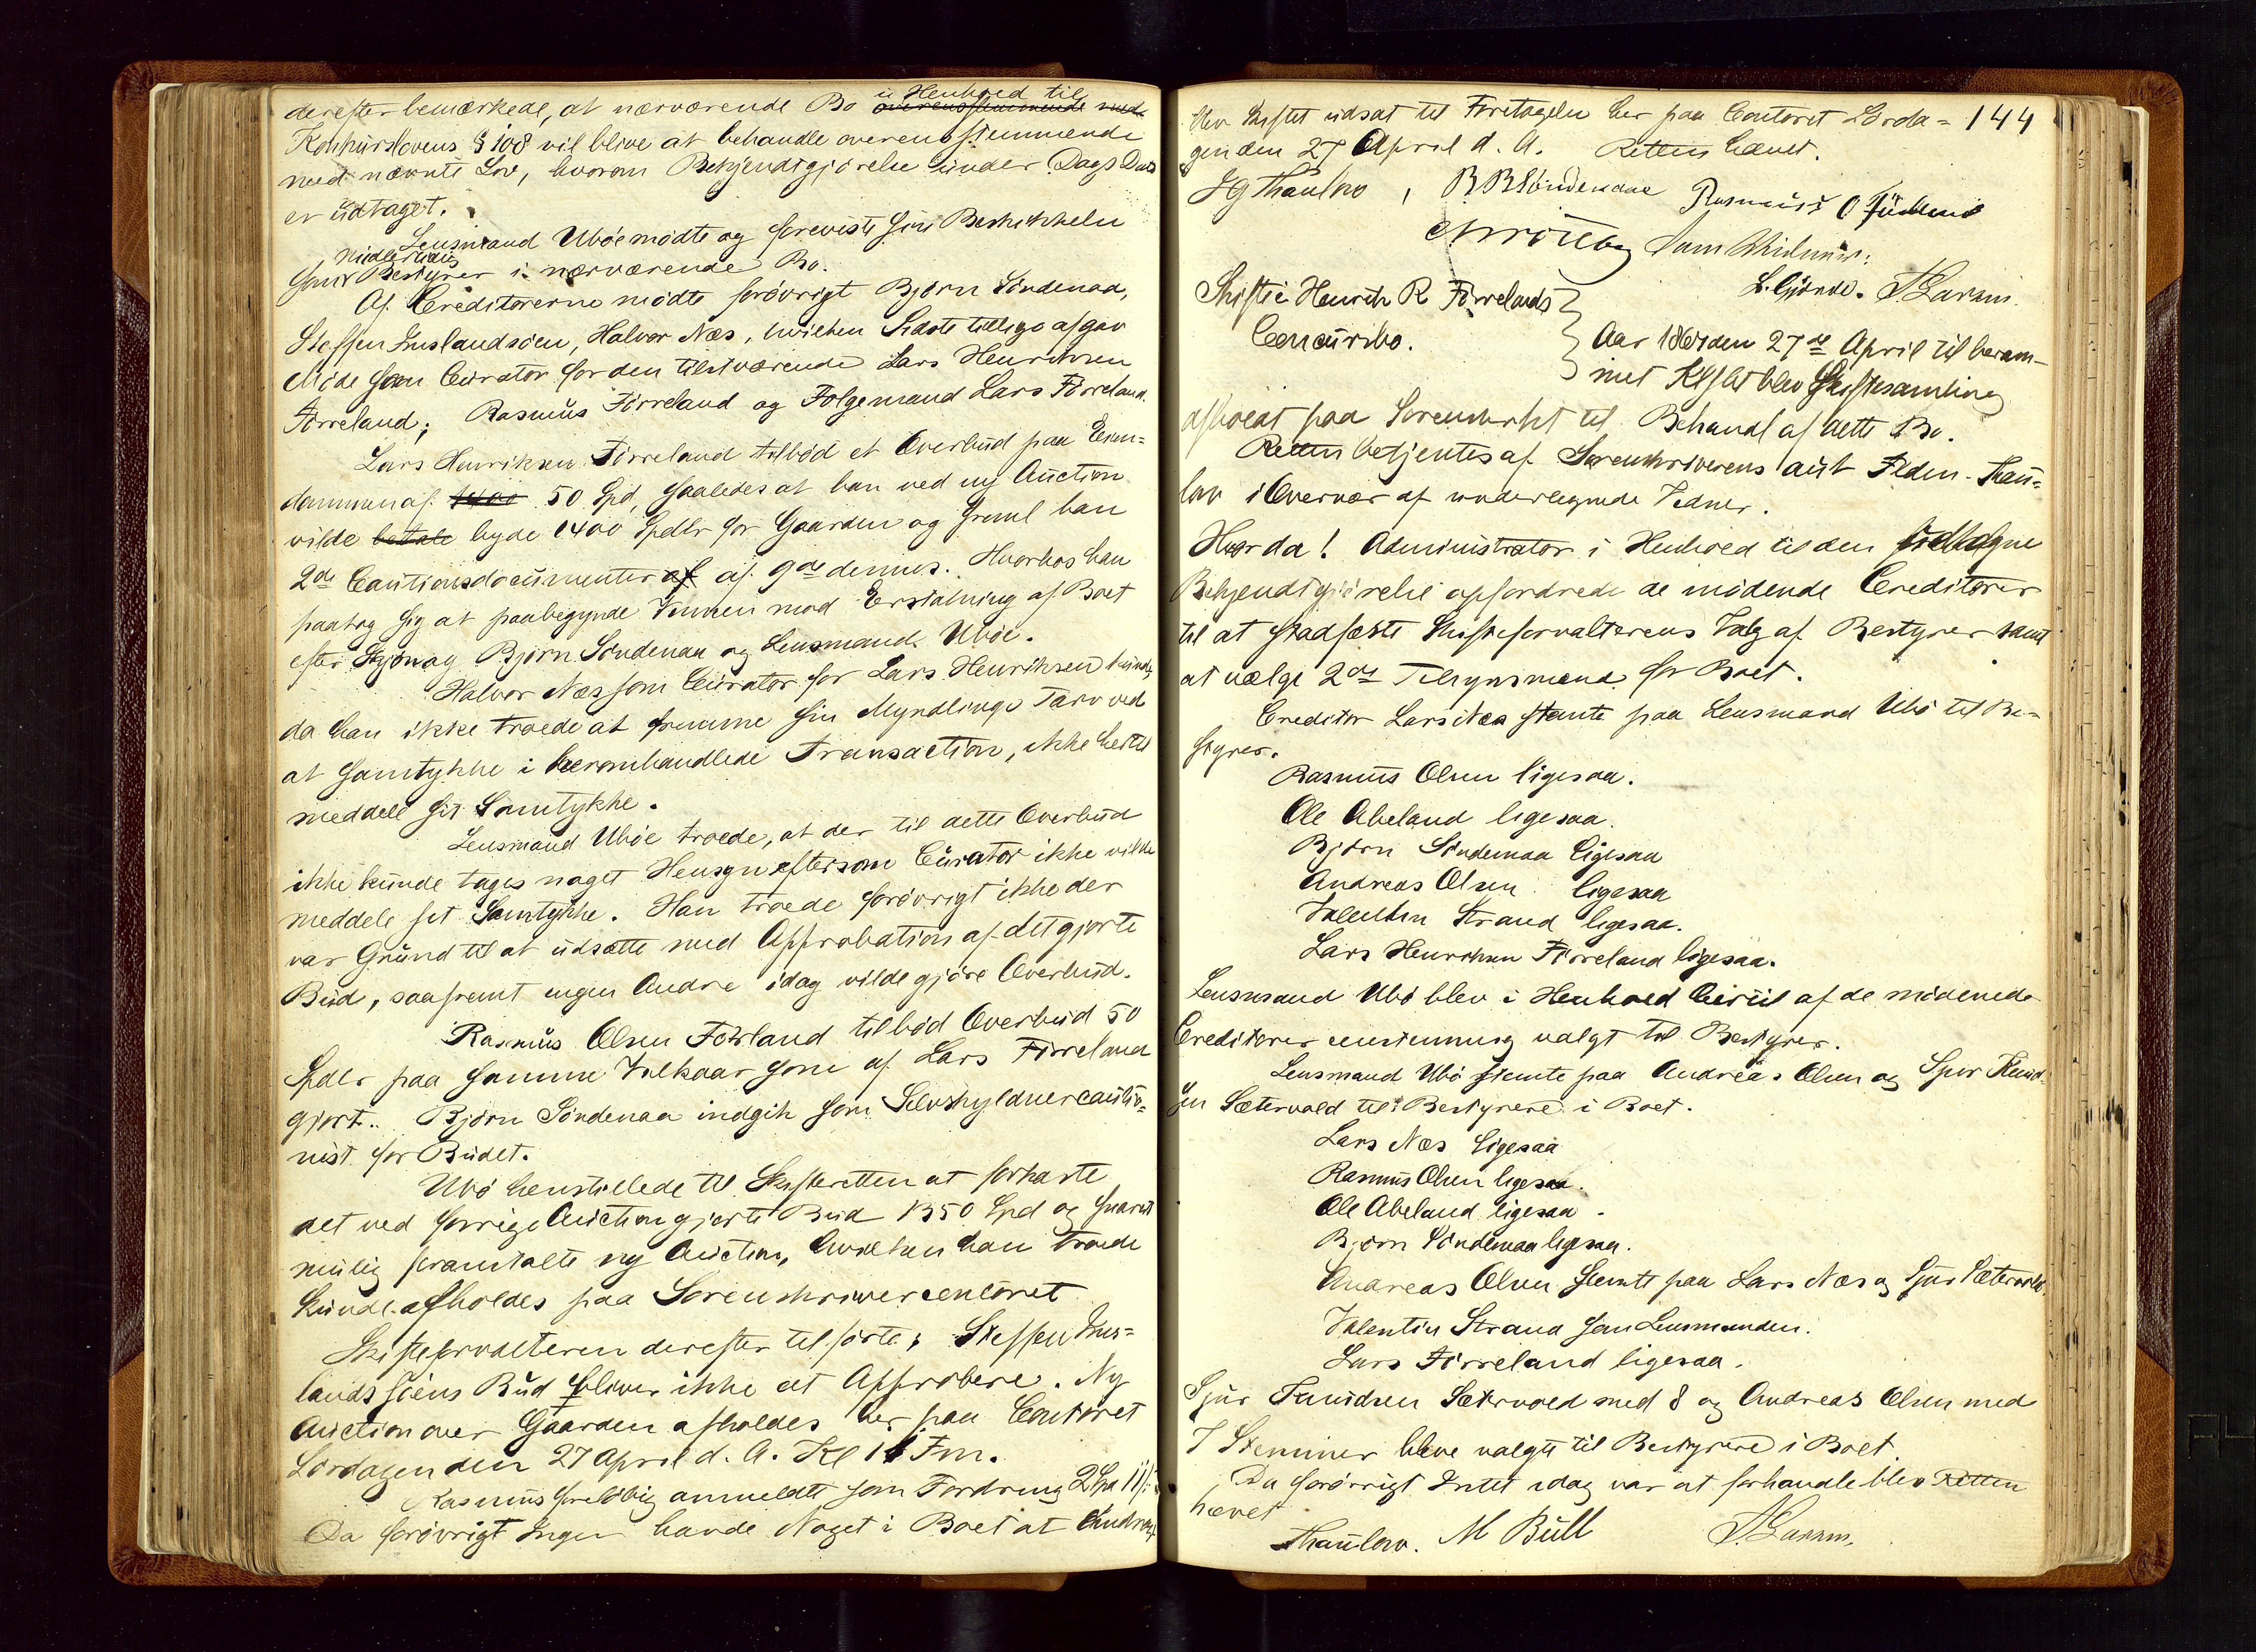 derefter bemærkede, at nærværende Bo overensstemmende med i Henhold til
Konkurslovens § 108 vil blive at behandle overensstemmende
med nævnte Lov, hvorom Bekjendtgjørelse under Dags Dato
er udtaget.
Lensmand Ubøe mødte og foreviste sin Beskikkelse
som midlertidig Bestyrer i nærværende Bo.
Af Creditorerne mødte forøvrigt Bjørn Søndenaa,
Steffen Huslandsøen, Halvor Næs, hvilken Sidste tillige afgav
Møde som Curator for den tilstværende Lars Henriksen
Førreland; Rasmus Førreland og Folgemand Lars Førreland.
Lars Henriksen Førreland tilbød et Overbud paa Eien-
dommen af 1400 50 Spd, saaledes at han ved ny Auction
vilde betale byde 1400 Spdlr for Gaarden og freml han
2de Cautionsdocumenter af af 9de dennes. Hvorhos han
paatog sig at paabegynde Vaannen mod Erstatning af Boet
efter Skjøn og Bjørn Søndenaa og Lensmand Ubøe.
Halvor Næs som Curator for Lars Henriksen kunde,
da han ikke troede at fremme sin Myndlings Tarv ved
at samtykke i heromhandlede Transaction, ikke hertil
meddele sit Samtykke.
Lensmand Ubøe troede, at der til dette Overbud
ikke kunde tages noget Hensyn eftersom Curator ikke vilde
meddele sit Samtykke. Han troede forøvrigt ikke der
var Grund til at udsætte med Approbation af det gjorte
Bud, saafremt ingen Andre idag vilde gjøre Overbud.
Rasmus Olsen Førland tilbød Overbud 50
Spdlr paa samme Vilkaar som af Lars Førreland
gjort. Bjørn Søndenaa indgik som Selvskyldnercautio-
nist for Budet.
Ubø henstillede til Skifteretten at forkaste
det ved forrige Auction gjorte Bud 1350 Spd og snarest
mulig foranstalte ny Auction, hvilken han troede
kunde afholdes paa Sorenskrivercontoret
Skifteforvalteren derefter tilførte: Steffen Hus-
landssøens Bud bliver ikke at Approbere. Ny
Auction over Gaarden afholdes her paa Contoret
Lørdagen den 27 April d. A. Kl 11 Fm.
Rasmus foreløbig anmeldte som Fordring 2 Spd
Da forøvrigt Ingen havde Noget i Boet at
144
blev Skiftet udsat til Foretagelse her paa Contoret Lørda-
gen den 27 April d. A. Retten hævet.
JG Thaulow, B B Søndenaae Rasmus O
som Vidner:
L. Gjønde. T Larsen.
Skifte i Henrik R Førrelands
Concursbo.
Aar 1867 den 27de April til beram-
met Klslet blev Skiftesamling
afholdt paa Sorenskrkt til Behandl af dette Bo.
Retten betjentes af Sorenskriverens aut Fldm. Thau-
low i Overvær af undertegnede Vidner.
Hvorda! Administrator i Henhold til den udtagne
Bekjendtgjørelse opfordrede de mødende Creditorer
til at stadfæste Skifteforvalterens Valg af Bestyrer samt
at vælge 2de Tilsynsmænd for Boet.
Creditor Lars Næs stemte paa Lensmand Ubø til Be-
styrer.
Rasmus Olsen ligesaa.
Ole Abeland ligesaa.
Bjørn Søndenaa ligesaa
Andreas Olsen ligesaa
Valentin Strand ligesaa.
Lars Henriksen Førreland ligesaa.
Lensmand Ubø blev i Henhold hertil af de mødende
Creditorer eenstemmig valgt til Bestyrer.
Lensmand Ubø stemte paa Andreas Olsen og Sjur Knud-
sen Sætervold til Bestyrere i Boet.
Lars Næs ligesaa
Rasmus Olsen ligesaa.
Ole Abeland ligesaa.
Bjørn Søndenaa ligesaa.
Andreas Olsen stemte paa Lars Næs og Sjur Sætervold.
Valentin Strand som Lensmanden.
Lars Førreland ligesaa.
Sjur Knudsen Sætervold med 8 og Andreas Olsen med
7 Stemmer bleve valgte til Bestyrere i Boet.
Da forøvrigt Intet idag var at forhandle blev Retten
hævet
Thaulow. M Bull T. Larsen.